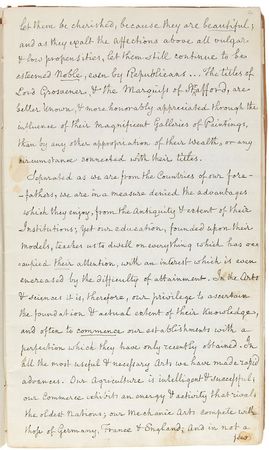 let them be cherished, because they are beautiful;
and as they exalt the affections above all vulgar
& low propensities, let them still continue to be
esteemed Noble, even by Republicans... The titles of
Lord Grosvenor, & the Marquiss of Stafford, are
better known, & more honorably appreciated through the
influence of their Magnificent Galleries of Paintings,
than by any other appropriation of their Wealth, or any
circumstance connected with their titles.
Separated as we are from the Countries of our fore-
fathers, we are in a measure denied the advantages
which they enjoy, from the Antiquity & extent of their
Institutions; yet our education, founded upon their
Models, teaches us to dwell on everything which has occ-
upied their attention, with an interest which is even
encreased by the difficulty of attainment. In the Arts
& sciences it is, therefore, our privilege to ascertain
the foundation & actual extent of their Knowledge,
and often to commence our establishments with a
perfection which they have only recently obtained. In
all the most useful & necessary Arts we have made rapid
advances. Our Agriculture is intelligent & successful;
our Commerce exhibits an energy & activity that rivals
the oldest Nations; our Mechanic Arts compete with
those of Germany, France & England; And in not a
few